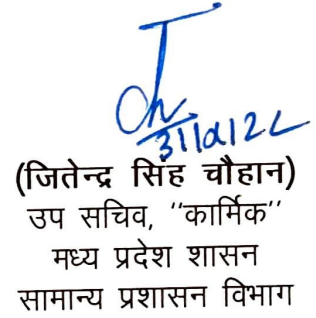 (जितेन्द्र सिंह चौहान)
उप सचिव, ''कार्मिक''
मध्य प्रदेश शासन
सामान्य प्रशासन विभाग